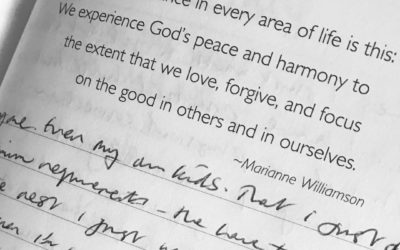 in every area of life is this:
We experience God's peace and harmony to
the extent that we love, forgive, and focus
on the good in others and in ourselves.
~Marianne Williamson
even my own kids. That I just
requirements - the have to
rest I just